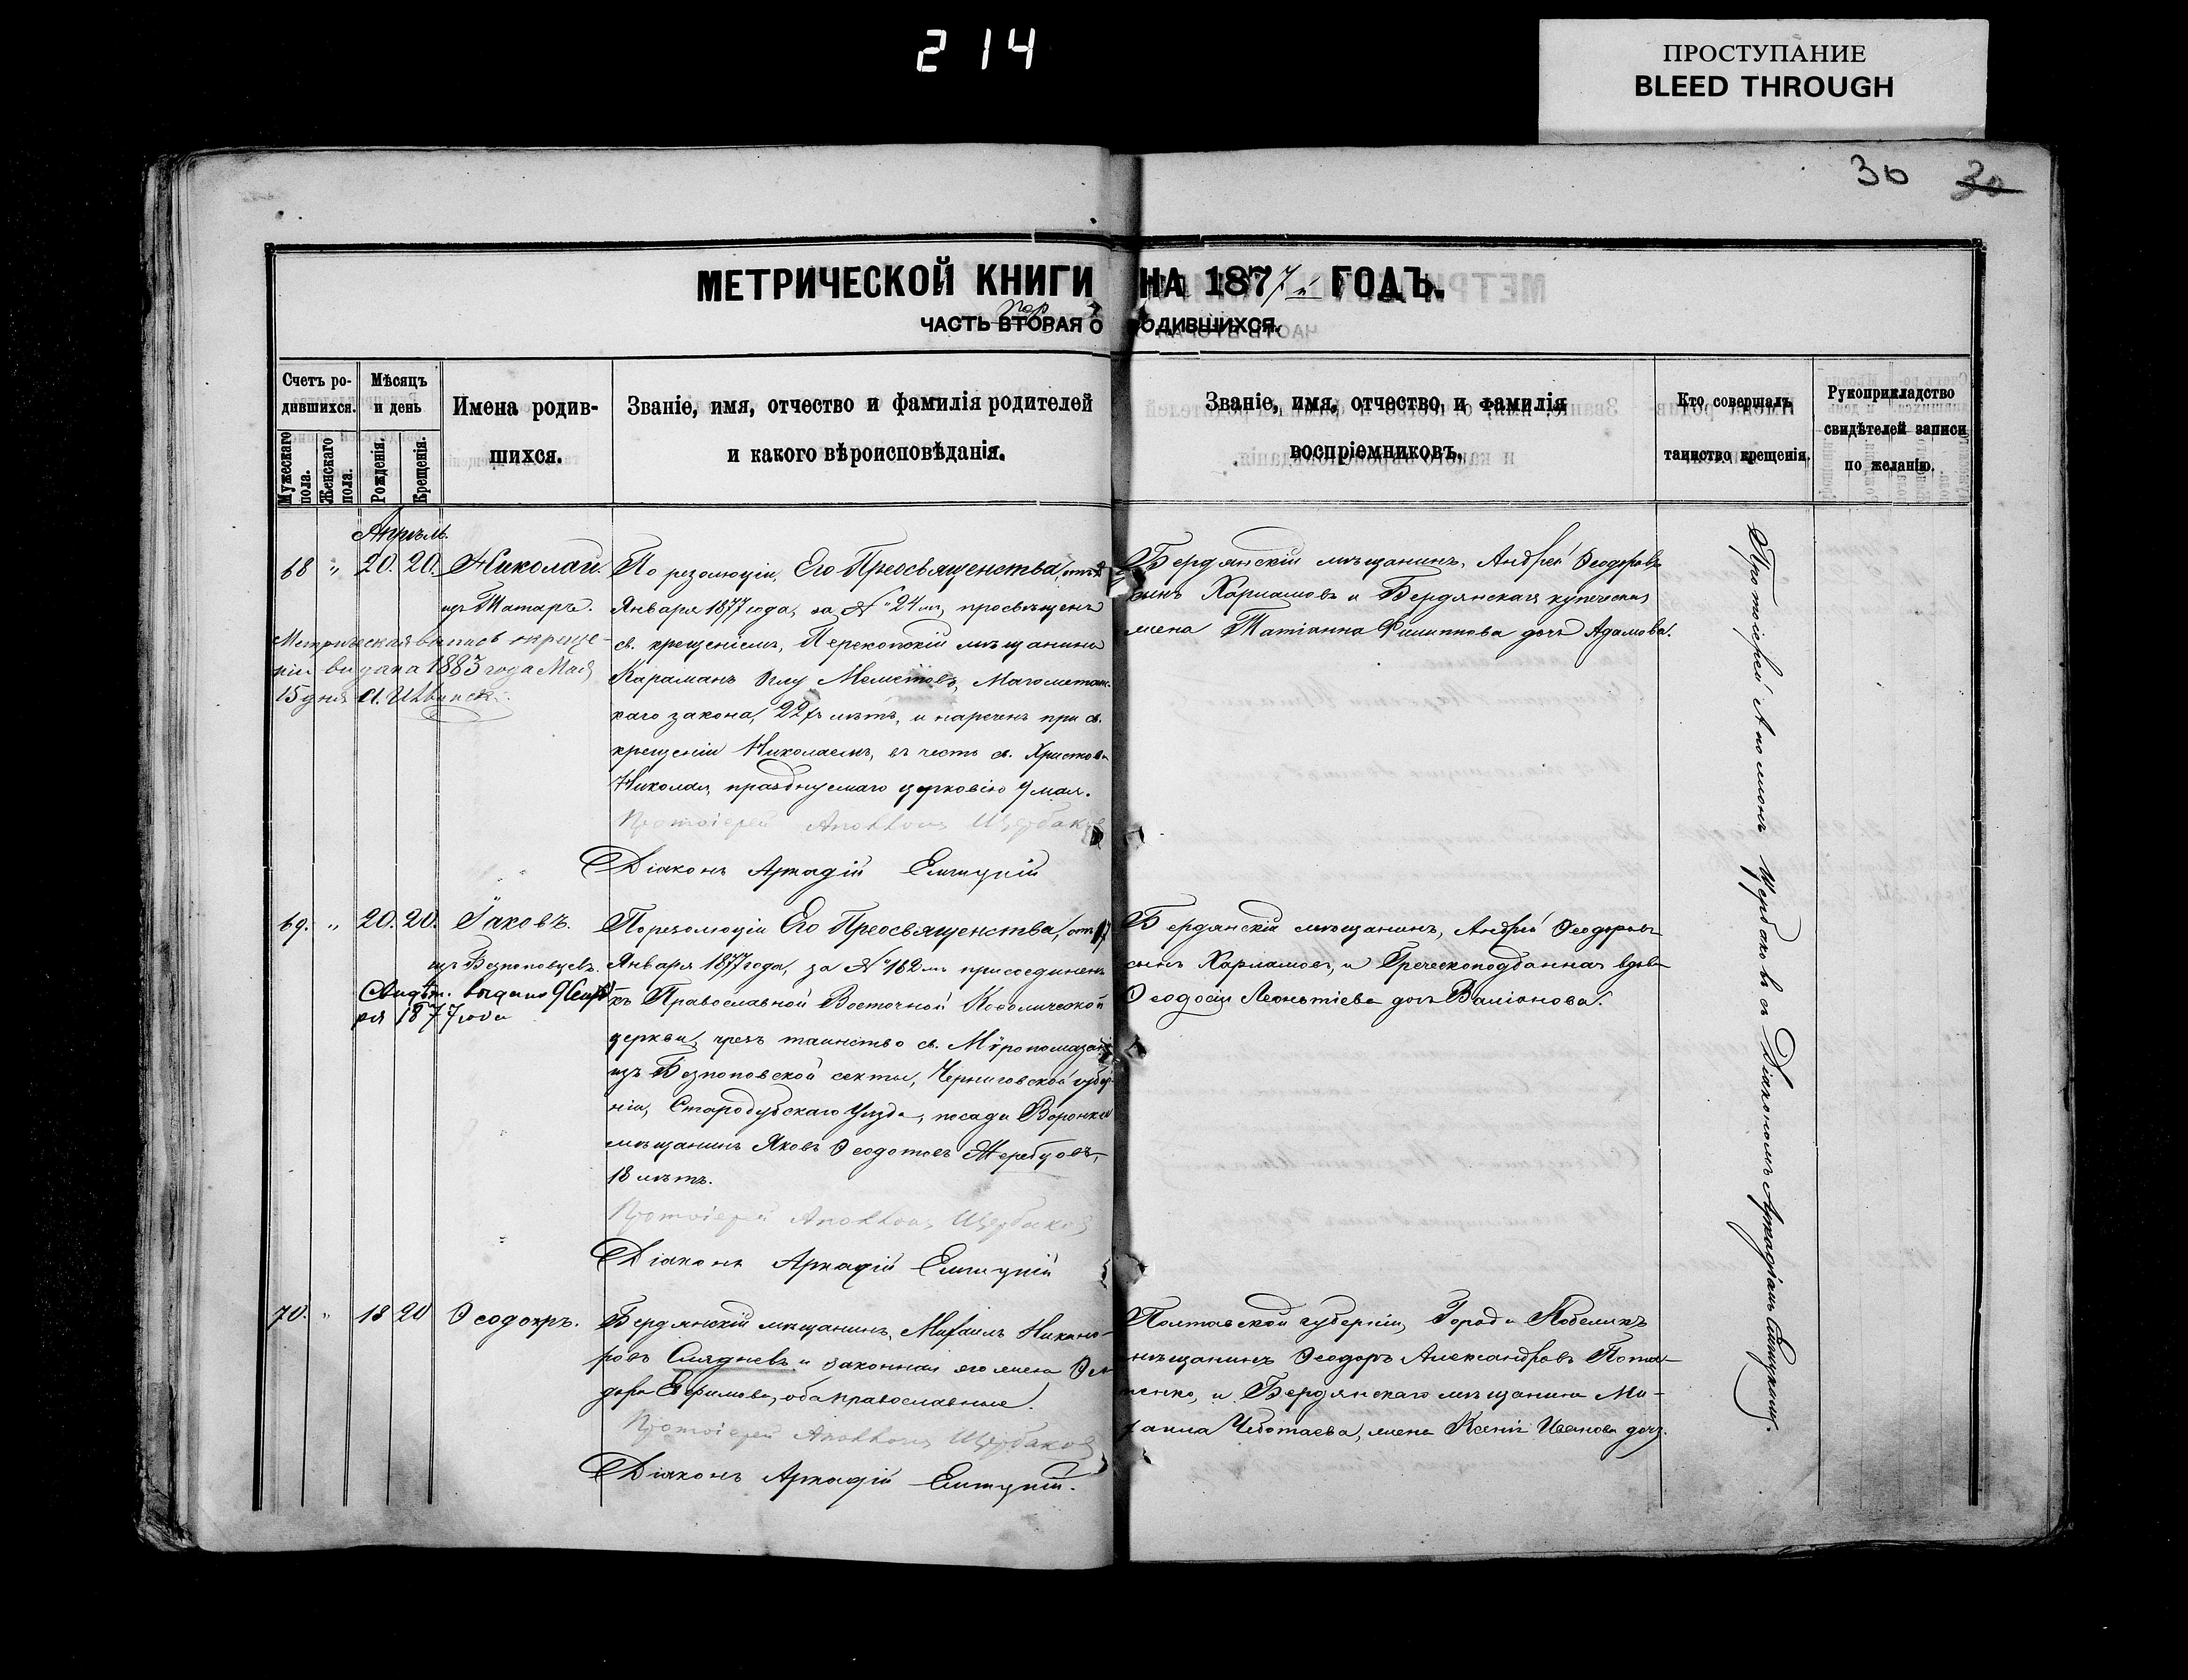 214
ПРОСТУПАНИЕ
BLEED THROUGH
30 30
МЕТРИЧЕСКОЙ КНИГИ НА 1877й ГОДЪ.
ЧАСТЬ ВТОРАЯ О РОДИВШИХСЯ.
Счетъ ро-
дившихся.
Мужескаго пола.
Женскаго пола.
Мѣсяцъ
и день
Рожденія.
Крещенія.
Имена родив-
шихся.
Званіе, имя, отчество и фамилія родителей
и какого вѣроисповѣданія.
Званіе, имя, отчество и фамилія
воспріемниковъ.
Кто совершалъ
таинство крещенія.
Рукоприкладство
свидѣтелей записи
по желанію.
Апрѣль.
68 " 20. 20. Николай.
изъ Татаръ.
Метрическая выпись о креще-
ніи выдана 1883 года Мая
15 дня
По резолюціи, Его Преосвященства, отъ
Января 1877 года, за № 24мъ, просвѣщенъ
св. крещеніемъ, Перекопскій мѣщанинъ
Караманъ Оглу Меметовъ, Магометан-
скаго закона, 22хъ лѣтъ, и нареченъ при св.
крещеніи Николаемъ, въ честь св. Христова
Николая, празднуемаго церковію 9 мая.
Протоіерей Аполлонъ Щербаковъ
Діаконъ Аркадій
Бердянскій мѣщанинъ, Андрей Ѳеодоровъ
сынъ Харламовъ и Бердянская купеческая
жена Татіанна Филиппова дочь Адамова.
69. " 20. 20. Іаковъ.
изъ Безпоповцевъ.
Свидѣт. выдано 9 Сентяб
ря 1877 года
По резолюціи Его Преосвященства, отъ 17
Января 1877 года, за № 182мъ присоединенъ
къ Православной Восточной Каѳолической
церкви, чрезъ таинство св. Мѵропомазанія
изъ Безпоповской секты, Черниговской губер-
ніи, Стародубскаго Уѣзда, посада Воронка
мѣщанинъ Яковъ Ѳеодотовъ Жеребцовъ,
18 лѣтъ.
Протоіерей Аполлонъ Щербаковъ
Діаконъ Аркадій
Бердянскій мѣщанинъ, Андрей Ѳеодоровъ
сынъ Харламовъ, и Греческоподданная вдова
Ѳеодосія Леонтіева дочь Валіанова.
70. " 18 20 Ѳеодоръ.
Бердянскій мѣщанинъ, Михаилъ Никано-
ровъ Смядневъ и законная его жена Ѳео
дора Ефимова, оба православные.
Протоіерей Аполлонъ Щербаковъ
Діаконъ Аркадій
Полтавской губерніи, Города Кобелякъ
мѣщанинъ Ѳеодоръ Александровъ Пота-
пенко, и Бердянскаго мѣщанина Ми-
хаила Чеботаева, жена Ксенія Иванова дочь.
Протоіерей Аполлонъ Щербаковъ съ Діакономъ Аркадіемъ